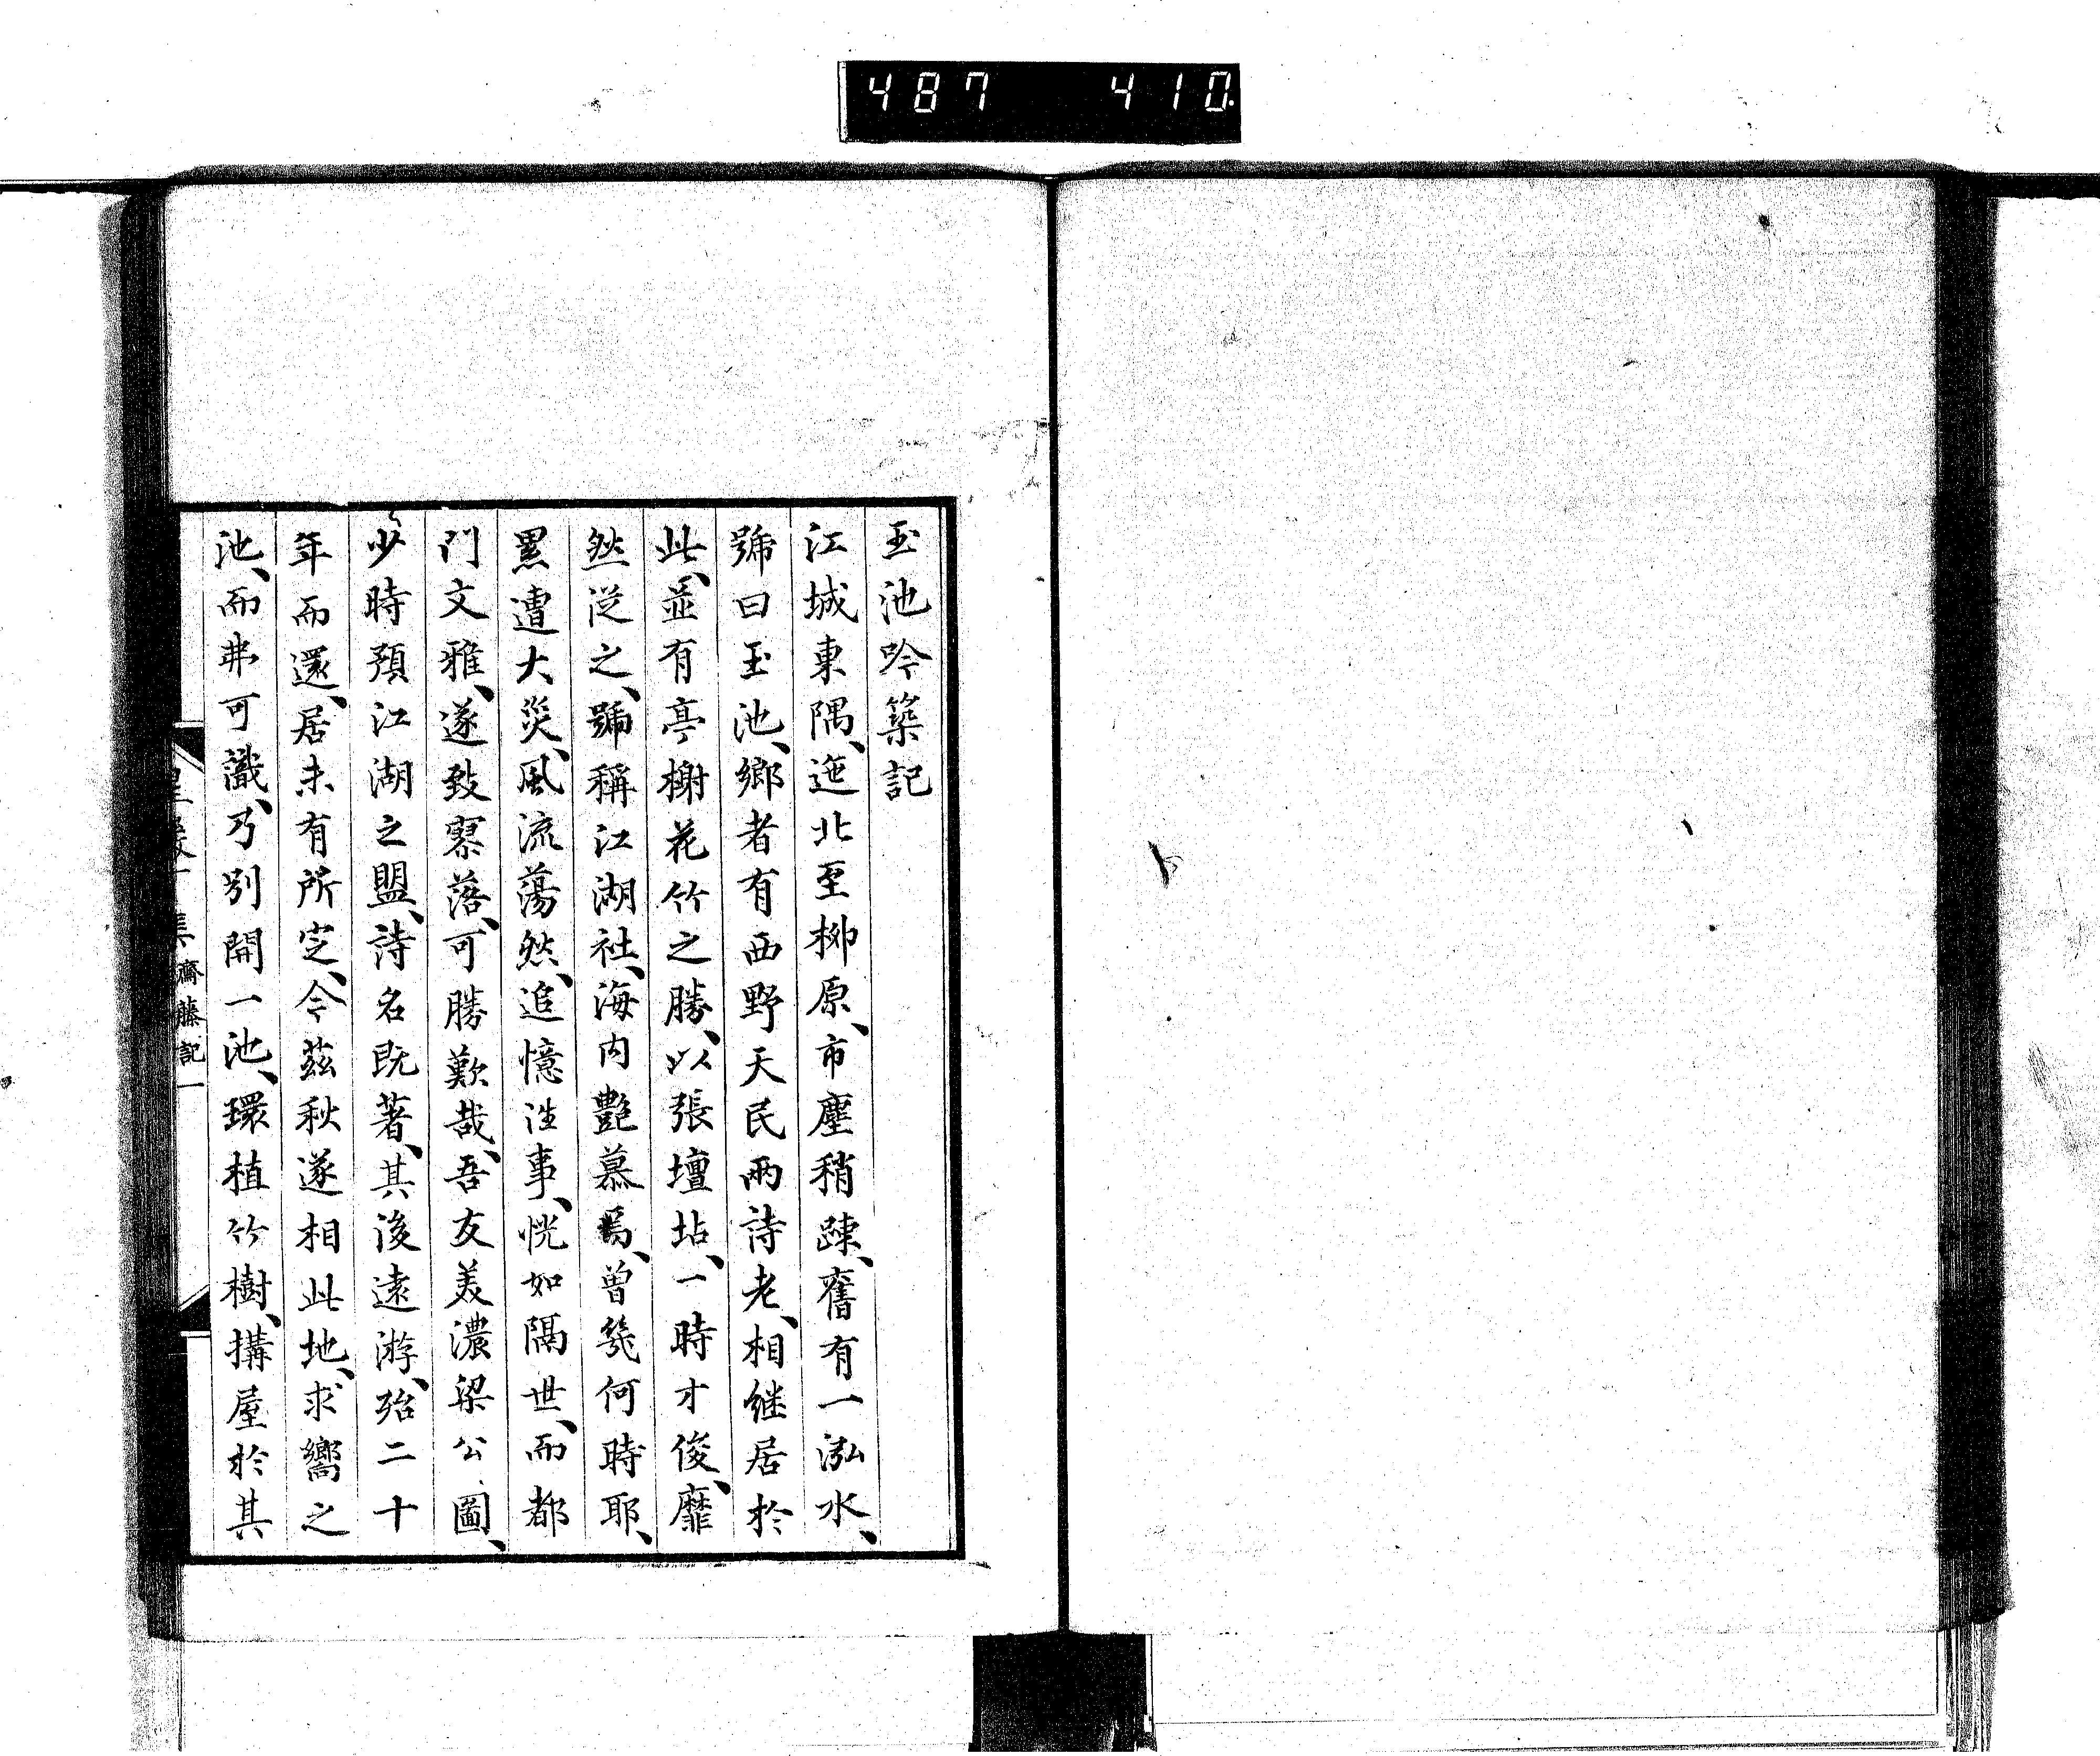 487 410
玉池吟築記
江城東隅、迤北至柳原、市廛稍踈、舊有一泓水、
號曰玉池、鄉者有西野天民兩詩老、相継居於
此、並有亭榭花竹之勝、以張壇坫、一時才俊、靡
然従之、號稱江湖社、海内艶慕焉、曽幾何時耶、
累遭大災、風流蕩然、追憶往事、恍如隔世、而都
門文雅、遂致寥落、可勝歎哉、吾友美濃梁公圖、
少時預江湖之盟、詩名既著、其後遠游、殆二十
年而還、居未有所定、今茲秋遂相此地、求嚮之
池、而弗可識、乃別開一池、環植竹樹、搆屋於其
齋藤記一